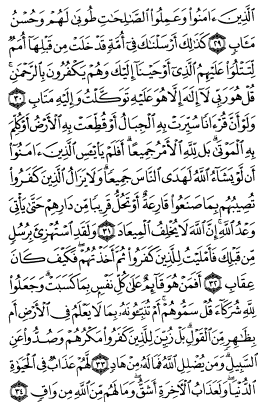 ٱلَّذِينَ ءَامَنُوا۟ وَعَمِلُوا۟ ٱلصَّٰلِحَٰتِ طُوبَىٰ لَهُمْ وَحُسْنُ
مَـَٔابٍ ٢٩ كَذَٰلِكَ أَرْسَلْنَٰكَ فِىٓ أُمَّةٍ قَدْ خَلَتْ مِن قَبْلِهَآ أُمَمٌ
لِّتَتْلُوَا۟ عَلَيْهِمُ ٱلَّذِىٓ أَوْحَيْنَآ إِلَيْكَ وَهُمْ يَكْفُرُونَ بِٱلرَّحْمَٰنِ ۚ
قُلْ هُوَ رَبِّى لَآ إِلَٰهَ إِلَّا هُوَ عَلَيْهِ تَوَكَّلْتُ وَإِلَيْهِ مَتَابِ ٣٠
وَلَوْ أَنَّ قُرْءَانًا سُيِّرَتْ بِهِ ٱلْجِبَالُ أَوْ قُطِّعَتْ بِهِ ٱلْأَرْضُ أَوْ كُلِّمَ
بِهِ ٱلْمَوْتَىٰ ۗ بَل لِّلَّهِ ٱلْأَمْرُ جَمِيعًا ۗ أَفَلَمْ يَا۟يْـَٔسِ ٱلَّذِينَ ءَامَنُوٓا۟
أَن لَّوْ يَشَآءُ ٱللَّهُ لَهَدَى ٱلنَّاسَ جَمِيعًا ۗ وَلَا يَزَالُ ٱلَّذِينَ كَفَرُوا۟
تُصِيبُهُم بِمَا صَنَعُوا۟ قَارِعَةٌ أَوْ تَحُلُّ قَرِيبًا مِّن دَارِهِمْ حَتَّىٰ يَأْتِىَ
وَعْدُ ٱللَّهِ ۚ إِنَّ ٱللَّهَ لَا يُخْلِفُ ٱلْمِيعَادَ ٣١ وَلَقَدِ ٱسْتُهْزِئَ بِرُسُلٍ
مِّن قَبْلِكَ فَأَمْلَيْتُ لِلَّذِينَ كَفَرُوا۟ ثُمَّ أَخَذْتُهُمْ ۖ فَكَيْفَ كَانَ
عِقَابِ ٣٢ أَفَمَنْ هُوَ قَآئِمٌ عَلَىٰ كُلِّ نَفْسٍۭ بِمَا كَسَبَتْ ۗ وَجَعَلُوا۟
لِلَّهِ شُرَكَآءَ قُلْ سَمُّوهُمْ ۚ أَمْ تُنَبِّـُٔونَهُۥ بِمَا لَا يَعْلَمُ فِى ٱلْأَرْضِ أَم
بِظَٰهِرٍ مِّنَ ٱلْقَوْلِ ۗ بَلْ زُيِّنَ لِلَّذِينَ كَفَرُوا۟ مَكْرُهُمْ وَصُدُّوا۟ عَنِ
ٱلسَّبِيلِ ۗ وَمَن يُضْلِلِ ٱللَّهُ فَمَا لَهُۥ مِنْ هَادٍ ٣٣ لَّهُمْ عَذَابٌ فِى ٱلْحَيَوٰةِ
ٱلدُّنْيَا ۖ وَلَعَذَابُ ٱلْءَاخِرَةِ أَشَقُّ ۖ وَمَا لَهُم مِّنَ ٱللَّهِ مِن وَاقٍ ٣٤